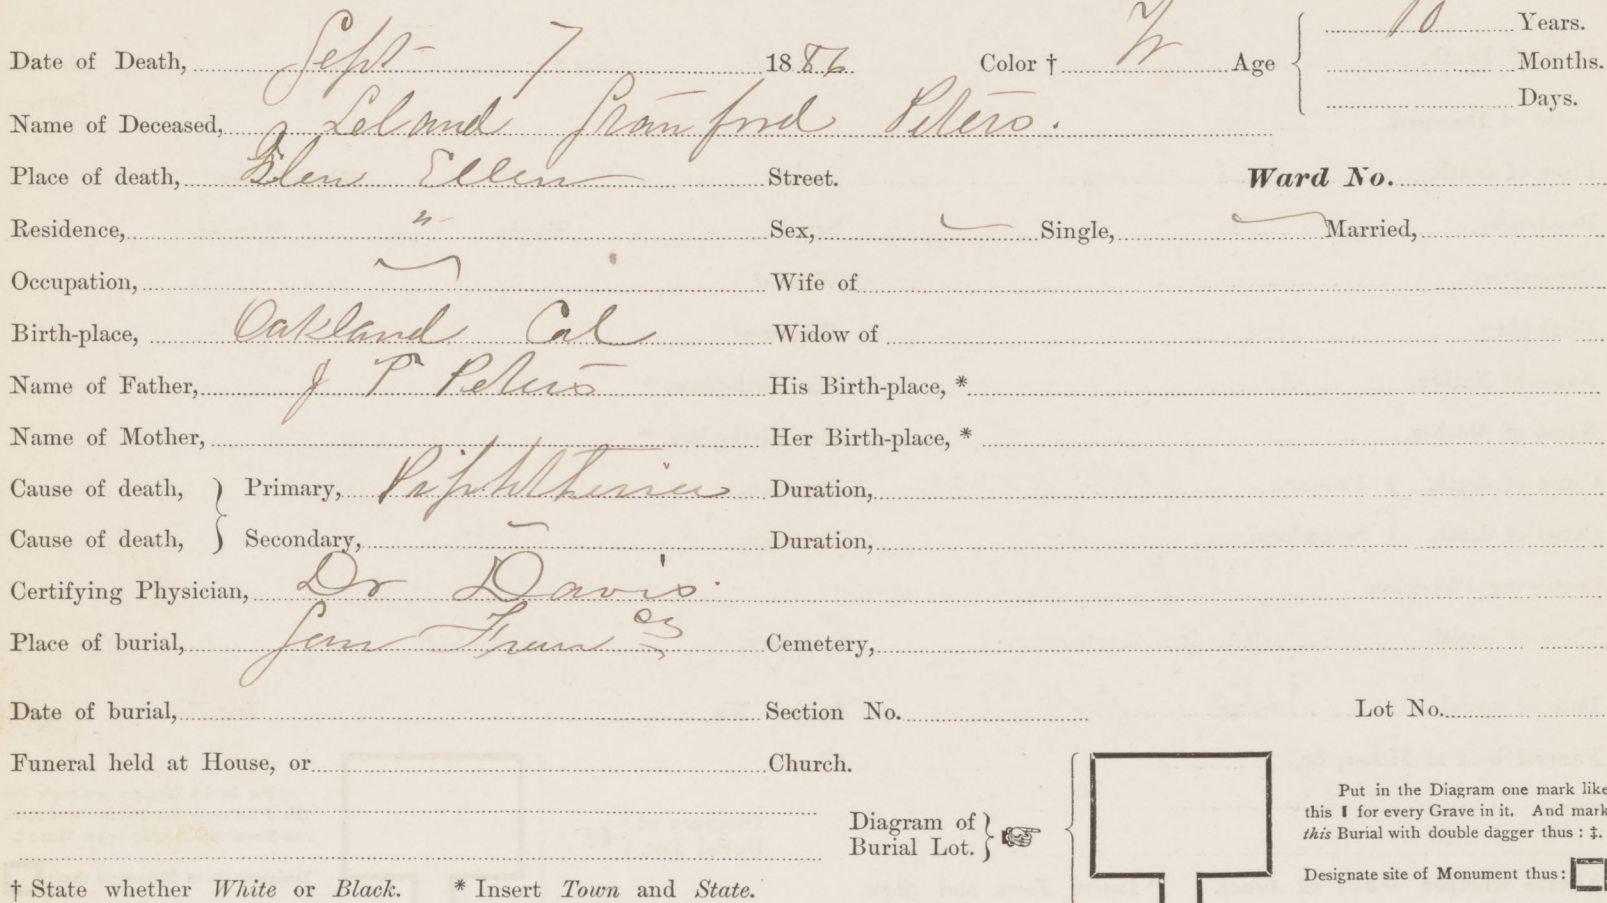 Date of Death, Sept 7 1886 Color † W Age 10 Years.
Months.
Days.
Name of Deceased, Leland Stanford Peters.
Place of death, Glen Ellen Street. Ward No.
Residence, " Sex, Single, Married,
Occupation, Wife of
Birth-place, Oakland Cal Widow of
Name of Father, J P Peters His Birth-place, *
Name of Mother, Her Birth-place, *
Cause of death, } Primary, Diphtheria Duration,
Cause of death, } Secondary, Duration,
Certifying Physician, Dr Davis.
Place of burial, San Fran Cemetery,
Date of burial, Section No. Lot No.
Funeral held at House, or Church.
Diagram of Burial Lot. }
Put in the Diagram one mark like
this ❙ for every Grave in it. And mark
this Burial with double dagger thus : ‡.
Designate site of Monument thus :
† State whether White or Black. * Insert Town and State.